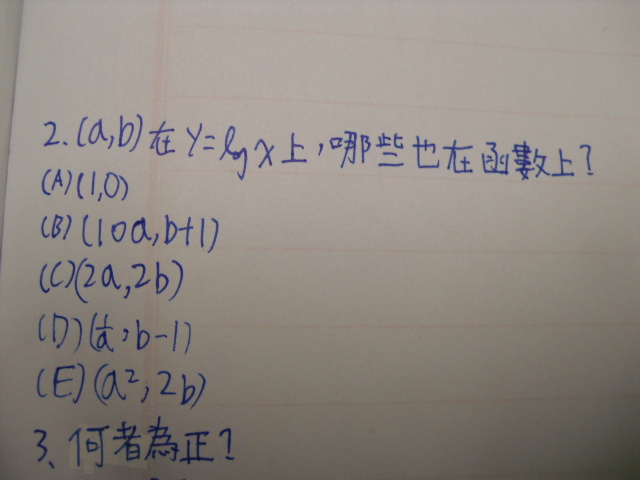 2. (a,b) 在 Y=log x 上，哪些也在函數上？
(A) (1,0)
(B) (10a, b+1)
(C) (2a, 2b)
(D) (1/a, b-1)
(E) (a², 2b)
3、何者為正？